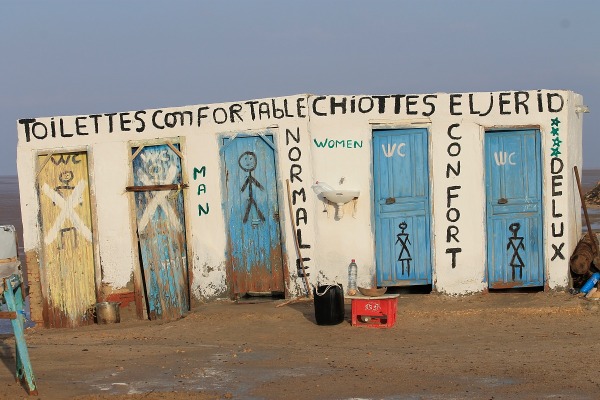 TOILETTES COMFORTABLE CHIOTTES EL JERID
WC
WC
MAN
NORMALE
WOMEN
WC
CONFORT
WC
DELUX